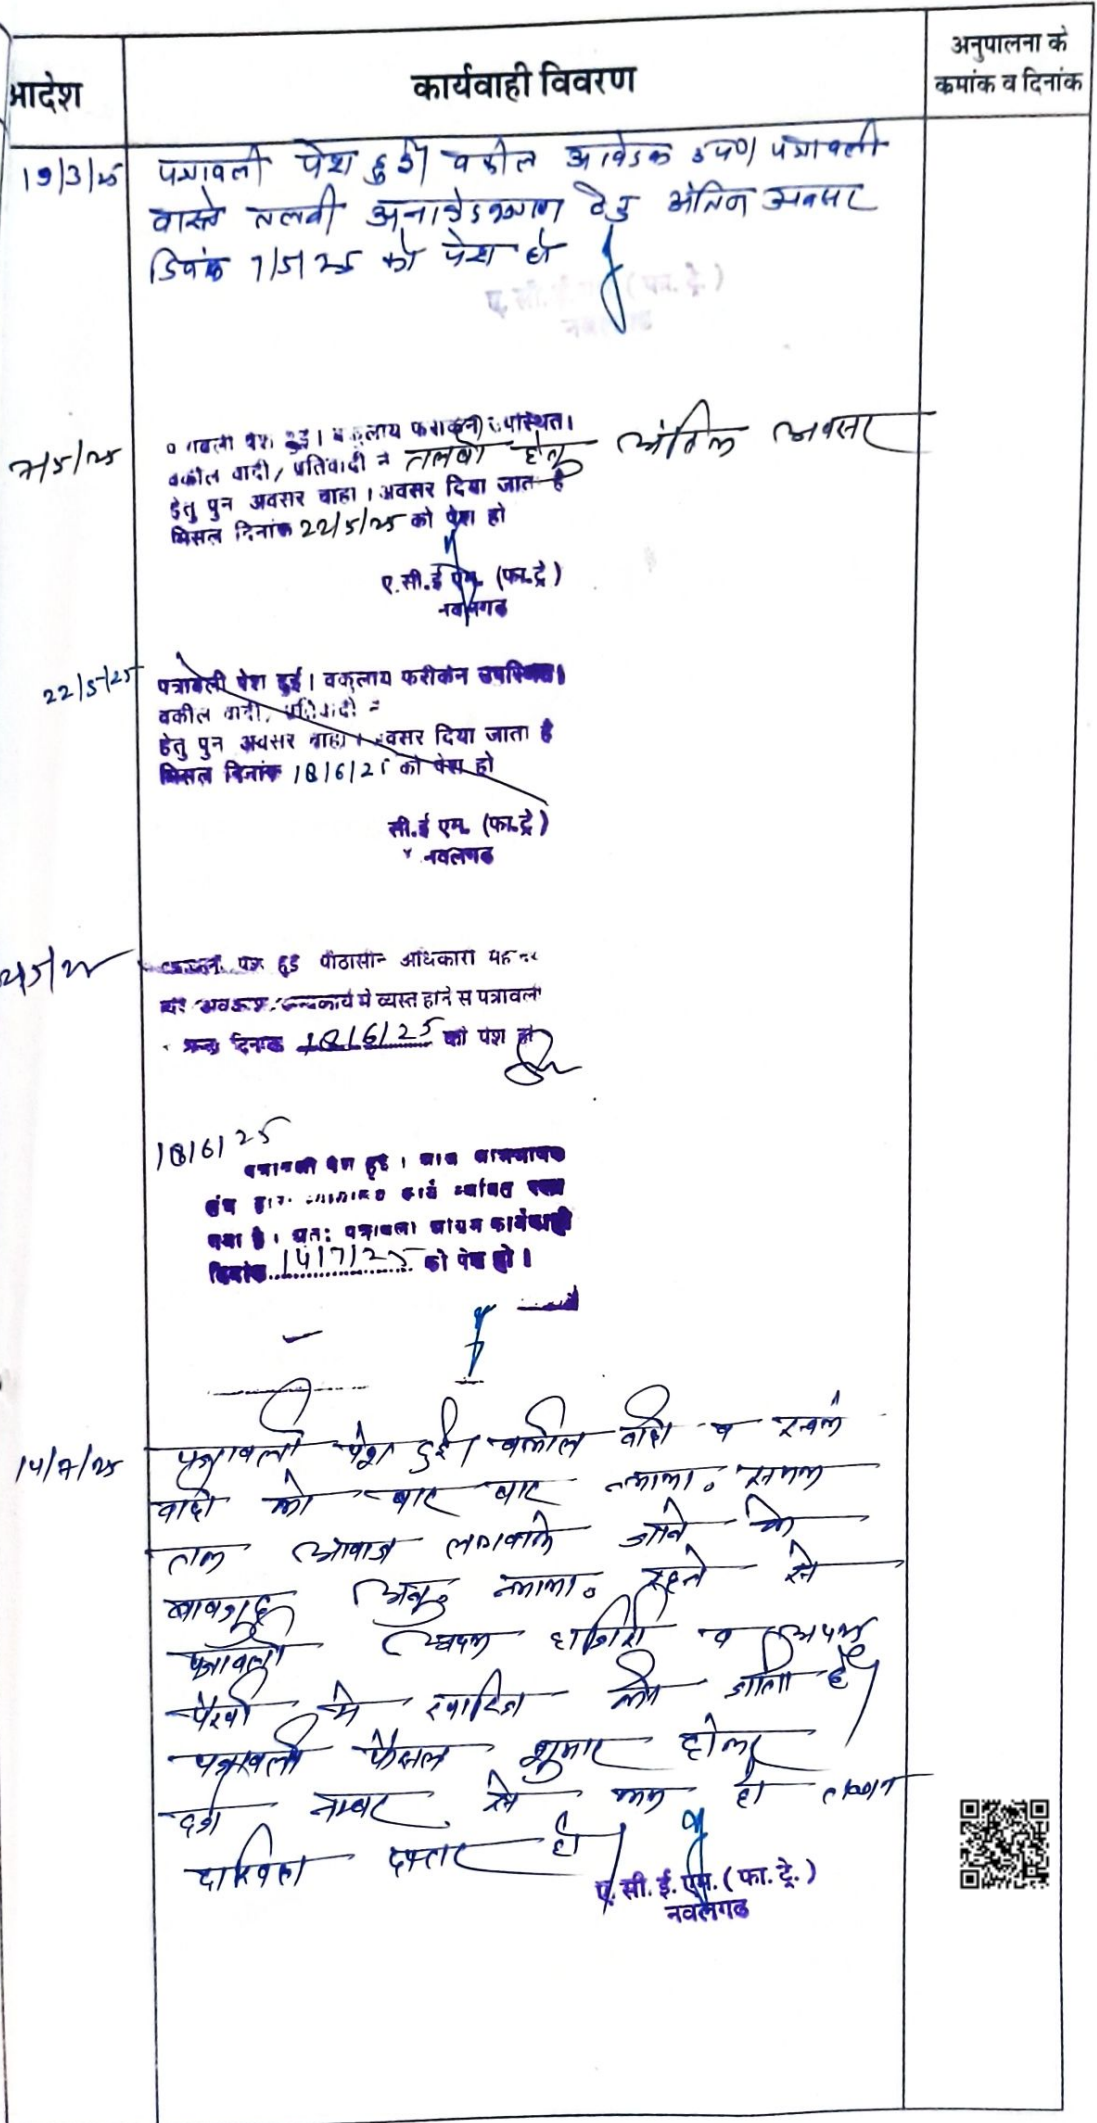 आदेश
कार्यवाही विवरण
अनुपालना के
कमांक व दिनांक
19/3/25 पत्रावली पेश हुई। वकील आवेदक उप0। पत्रावली
वास्ते तलवी अनावेदकगण हेतु अंतिम अवसर
दिनांक 7/5/25 को पेश हो
ए. सी. ई. (फा. ट्रे.)
7/5/25
पेश हुई। वकूलाय फरीकेन उपस्थित।
वकील वादी/ प्रतिवादी ने तलबी हेतू अंतिम अवसर
हेतु पुन अवसर चाहा। अवसर दिया जाता है
मिसल दिनांक 22/5/25 को पेश हो
ए.सी.ई एम. (फा.ट्रे)
नवलगढ
22/5/25 पत्रावली पेश हुई। वकुलाय फरीकेन उपस्थित।
वकील वादी, प्रतिवादी ने
हेतु पुन अवसर चाहा। अवसर दिया जाता है
मिसल दिनांक 18/6/25 को पेश हो
सी.ई एम. (फा.ट्रे)
नवलगढ
हुई पीठासीन अधिकारी
कार्य मे व्यस्त होने से पत्रावली
दिनांक 18/6/25 को पेश हो
18/6/25
पत्रावली पेश हुई।
संघ द्वारा कार्य स्थगित रखा
गया है। अत: पत्रावली कार्यवाही
दिनांक 14/7/25 को पेश हो।
14/7/25 पत्रावली पेश हुई। वकील वादी व स्वयं
वादी को बार बार समय
तक आवाज लगवाये जाने के
बावजूद रहने से
पत्रावली अदम हाजिरी व अदम
पैरवी मे खारिज की जाती है।
पत्रावली फैसल शुमार होकर
दर्ज नम्बर से कम हो
दाखिल दफ्तर हो।
ए. सी. ई. एम. (फा. ट्रे.)
नवलगढ